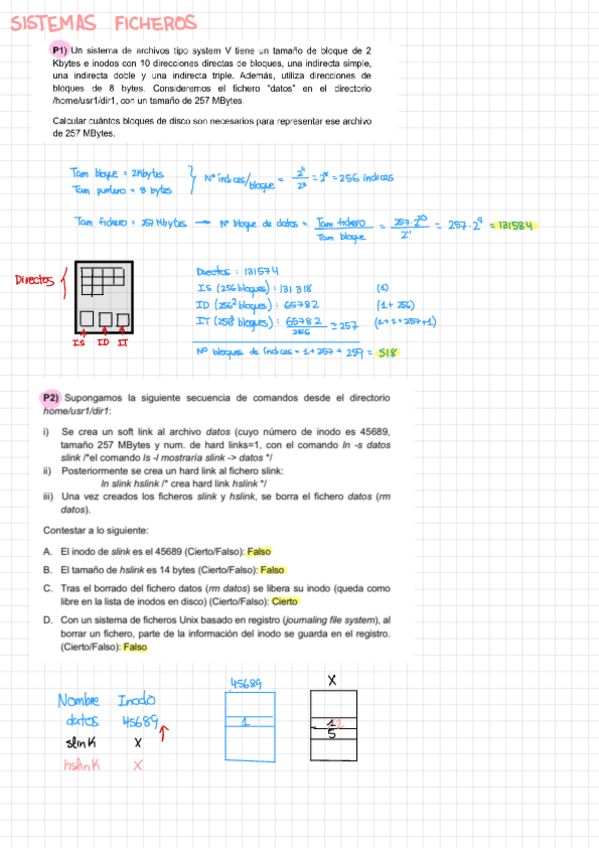 SISTEMAS FICHEROS
P1) Un sistema de archivos tipo system V tiene un tamaño de bloque de 2
Kbytes e inodos con 10 direcciones directas de bloques, una indirecta simple,
una indirecta doble y una indirecta triple. Además, utiliza direcciones de
bloques de 8 bytes. Consideremos el fichero "datos" en el directorio
/home/usr1/dir1, con un tamaño de 257 MBytes.
Calcular cuántos bloques de disco son necesarios para representar ese archivo
de 257 MBytes.
Tam bloque = 2Kbytes
Tam puntero = 8 bytes
Nº índices/bloque = 2^11/2^3 = 2^8 = 256 índices
Tam fichero = 257 Mbytes → Nº bloque de datos = Tam fichero/Tam bloque = 257·2^20/2^11 = 257·2^9 = 131584
Directos
IS ID IT
Directos : 131574
IS (256 bloques) : 131 318 (1)
ID (256² bloques) : 65782 (1+ 256)
IT (256³ bloques) : 65782/256 = 257 (1+1+257+1)
Nº bloques de índices = 1+257+ 259 = 518
P2) Supongamos la siguiente secuencia de comandos desde el directorio
home/usr1/dir1:
i) Se crea un soft link al archivo datos (cuyo número de inodo es 45689,
tamaño 257 MBytes y num. de hard links=1, con el comando ln -s datos
slink /*el comando ls -l mostraría slink -> datos */
ii) Posteriormente se crea un hard link al fichero slink:
ln slink hslink /* crea hard link hslink */
iii) Una vez creados los ficheros slink y hslink, se borra el fichero datos (rm
datos).
Contestar a lo siguiente:
A. El inodo de slink es el 45689 (Cierto/Falso): Falso
B. El tamaño de hslink es 14 bytes (Cierto/Falso): Falso
C. Tras el borrado del fichero datos (rm datos) se libera su inodo (queda como
libre en la lista de inodos en disco) (Cierto/Falso): Cierto
D. Con un sistema de ficheros Unix basado en registro (journaling file system), al
borrar un fichero, parte de la información del inodo se guarda en el registro.
(Cierto/Falso): Falso
Nombre Inodo
datos 45689
slink X
hslink X
45689
1
X
1 2
5